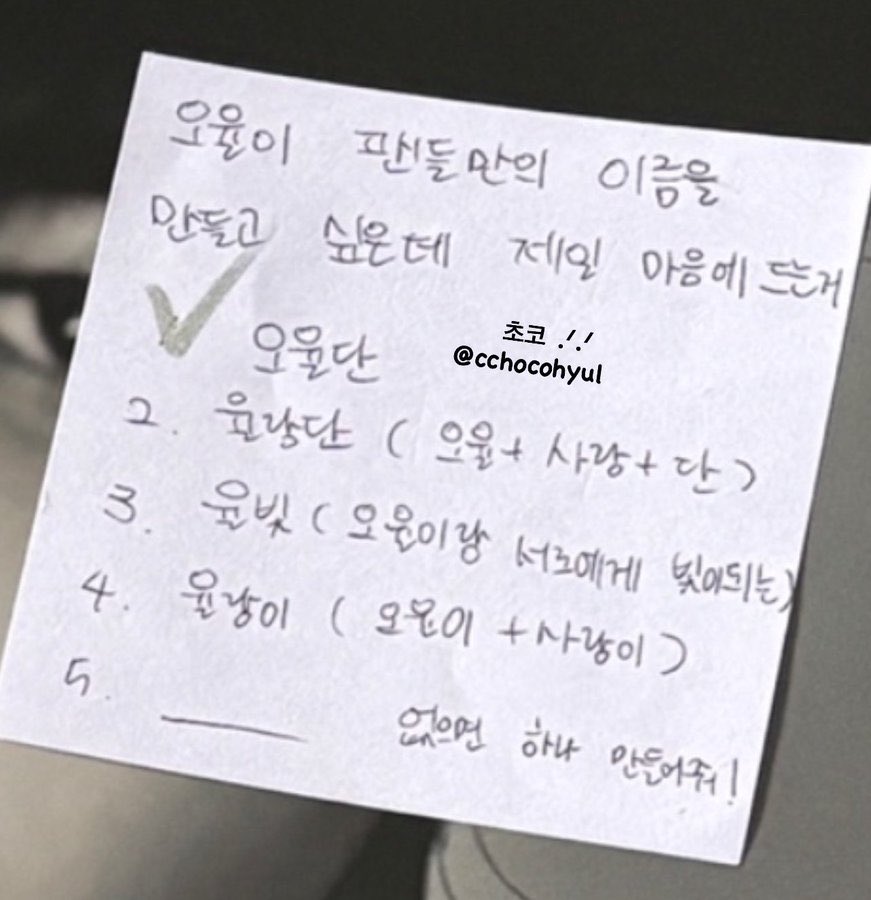 오율이 팬들만의 이름을
만들고 싶은데 제일 마음에 드는거
오율단
초코 .ᐟ.ᐟ
@cchocohyul
2. 율랑단 ( 오율 + 사랑 + 단 )
3. 율빛 ( 오율이랑 서로에게 빛이되는 )
4. 율랑이 ( 오율이 + 사랑이 )
5. ______ 없으면 하나 만들어줘!